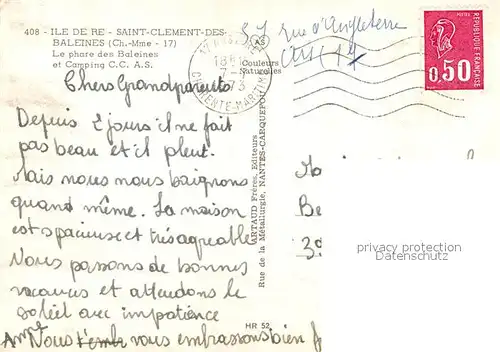 408 - ILE DE RE - SAINT-CLEMENT-DES-
BALEINES (Ch.-Mme - 17)
Le phare des Baleines
et Camping C.C. A.S.
Couleurs
Naturelles
57 rue d'Angleterre
18H
7-
73
CHARENTE-MARITIME
POSTES
RÉPUBLIQUE FRANÇAISE
0,50
Chers Grandparents
Depuis 2 jours il ne fait
pas beau et il pleut.
Mais nous nous baignons
quand même. La maison
est spacieuse et très agréable
Nous passons de bonnes
vacances et attendons le
soleil avec impatience
Nous vous embrassons bien f
ARTAUD Frères, Editeurs
Rue de la Métallurgie, NANTES-CARQUEFOU
HR 52
Be
3
privacy protection
Datenschutz